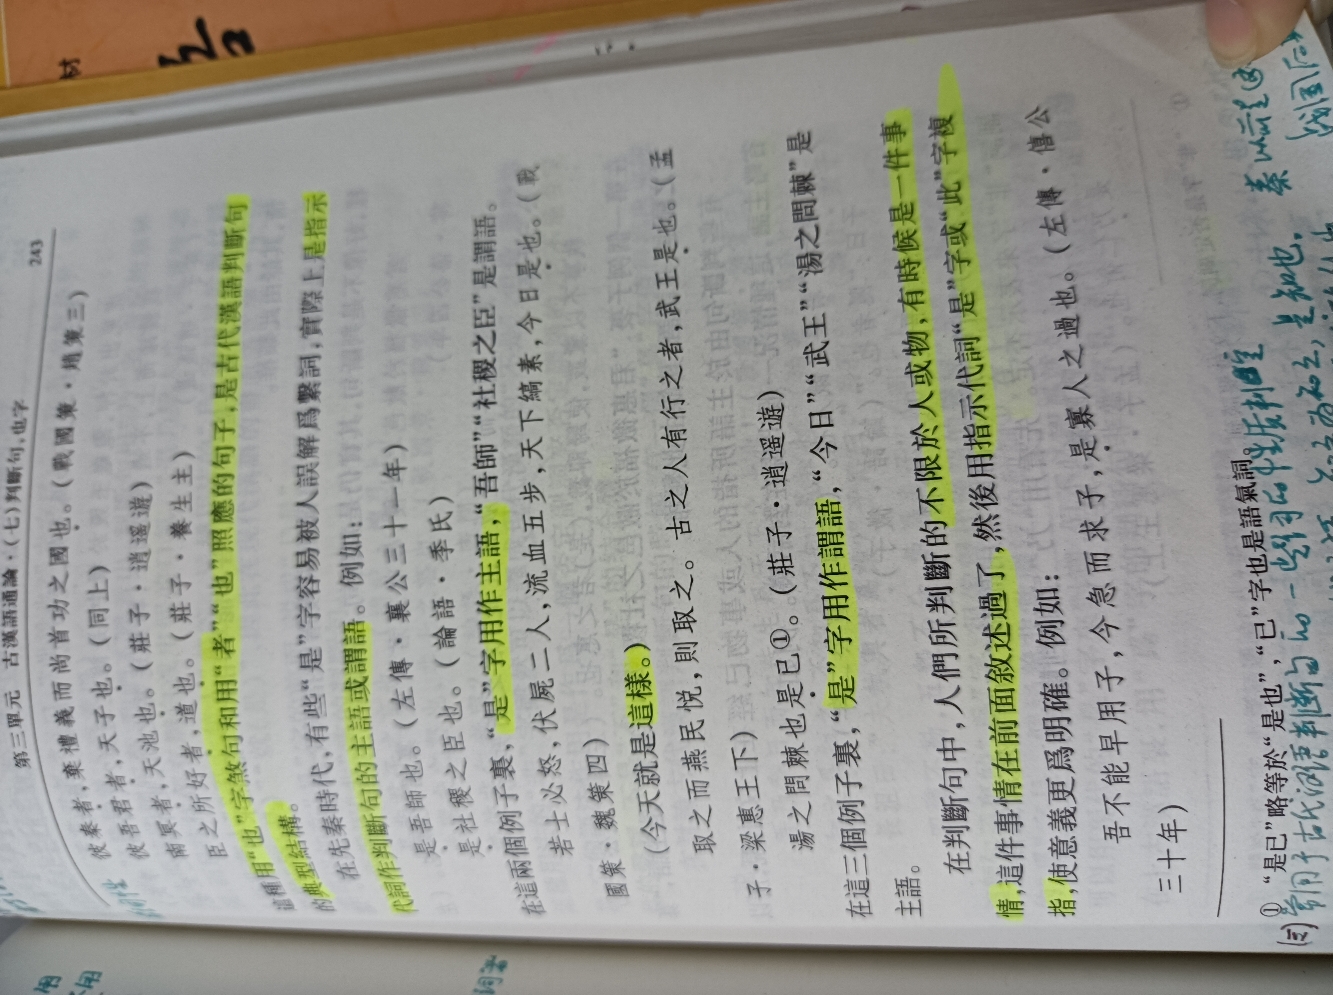 第三單元　古漢語通論·(七)判斷句,也字
243
彼秦者,棄禮義而尚首功之國也。(戰國策·趙策三)
彼吾君者,天子也。(同上)
南冥者,天池也。(莊子·逍遥遊)
臣之所好者,道也。(莊子·養生主)
這種用“也”字煞句和用“者”“也”照應的句子,是古代漢語判斷句
的典型結構。
在先秦時代,有些“是”字容易被人誤解爲繫詞,實際上是指示
代詞作判斷句的主語或謂語。例如:
是吾師也。(左傳·襄公三十一年)
是社稷之臣也。(論語·季氏)
在這兩個例子裏,“是”字用作主語,“吾師”“社稷之臣”是謂語。
若士必怒,伏屍二人,流血五步,天下縞素,今日是也。(戰
國策·魏策四)
(今天就是這樣。)
取之而燕民悦,則取之。古之人有行之者,武王是也。(孟
子·梁惠王下)
湯之問棘也是已①。(莊子·逍遥遊)
在這三個例子裏,“是”字用作謂語,“今日”“武王”“湯之問棘”是
主語。
在判斷句中,人們所判斷的不限於人或物,有時候是一件事
情,這件事情在前面敘述過了,然後用指示代詞“是”字或“此”字複
指,使意義更爲明確。例如:
吾不能早用子,今急而求子,是寡人之過也。(左傳·僖公
三十年)
①　“是已”略等於“是也”,“已”字也是語氣詞。